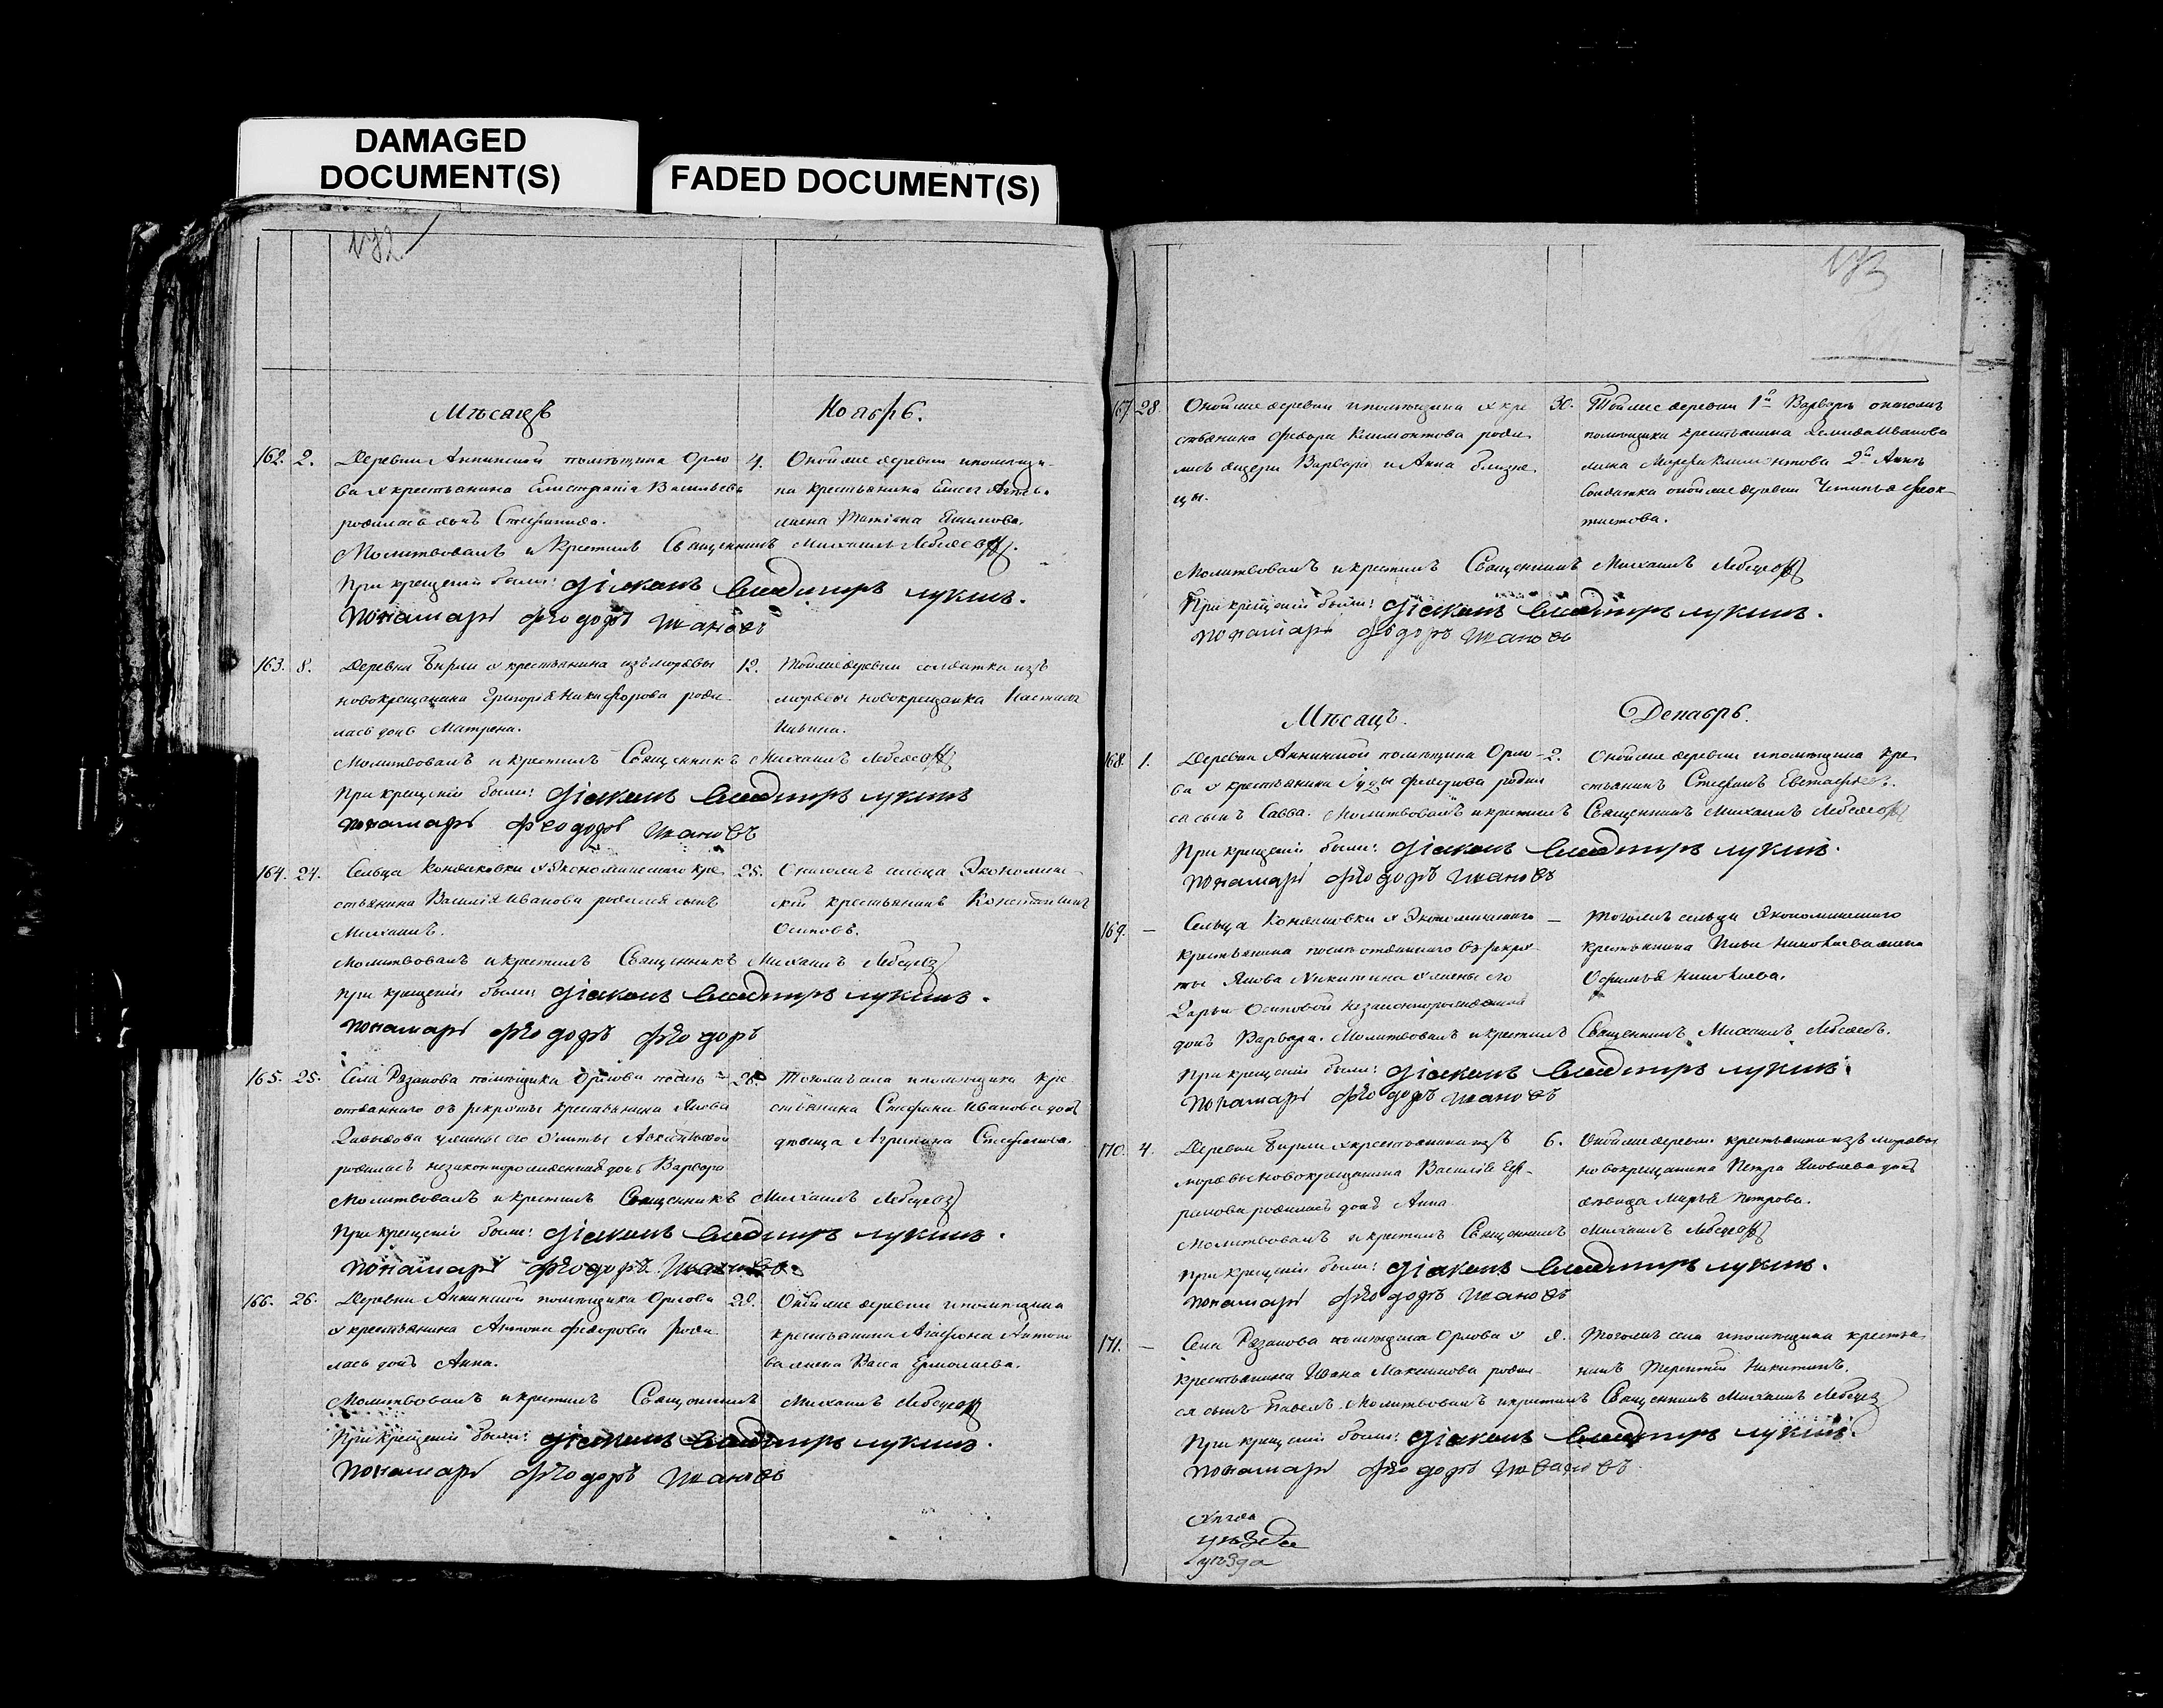 DAMAGED
DOCUMENT(S)
FADED DOCUMENT(S)
172
Мѣсяцъ Ноябрь.
162. 2. Деревни Аннинской помѣщика Орло
ва у крестьянина Елистратія Васильева
родилась дочь Стефанида.
4. Оной же деревни и помѣщи-
ка крестьянина
жена Татіана Якимова.
Молитвовалъ и Крестилъ Священникъ Михаилъ Лебедевъ.
При крещеніи были: Діаконъ Владимиръ Лукинъ.
Пономарь Ѳеодоръ Ивановъ
163. 8. Деревни Бирли у крестьянина изъ мордвы
новокрещанина Григорія Никифорова роди
лась дочь Матрена.
12. Той же деревни солдатка изъ
мордвы новокрещанка Настасья
Ильина.
Молитвовалъ и крестилъ Священникъ Михаилъ Лебедевъ
При крещеніи были: Діаконъ Владимиръ Лукинъ
пономарь Ѳеодоръ Ивановъ
164. 24. Сельца Кондаковки у Экономическаго кре
стьянина Василія Иванова родился сынъ
Михаилъ.
25. Онагожъ сельца Экономиче-
скій крестьянинъ Константинъ
Осиповъ.
Молитвовалъ и крестилъ Священникъ Михаилъ Лебедевъ
При крещеніи были Діаконъ Владимиръ Лукинъ.
пономарь Ѳеодоръ Ѳеодоръ
165. 25. Села Рязанова помѣщика Орлова послѣ
отданнаго въ рекруты крестьянина Якова
Давыдова у жены его Улиты
родилась незаконнорожденная дочь Варвара
26. Тогожъ села и помѣщика кре
стьянина Стефана Иванова дочь
дѣвица Агрипина Стефанова.
Молитвовалъ и крестилъ Священникъ Михаилъ Лебедевъ
При крещеніи были: Діаконъ Владимиръ Лукинъ.
пономарь Ѳеодоръ Ивановъ.
166. 26. Деревни Аннинской помѣщика Орлова
у крестьянина Антона Федорова роди
лась дочь Анна.
Оной же деревни и помѣщика
крестьянина Агафона Антоно
ва жена Васса Ермолаева.
Молитвовалъ и крестилъ Священникъ Михаилъ Лебедевъ
При крещеніи были: Діаконъ Владимиръ Лукинъ.
Пономарь Ѳеодоръ Ивановъ
173
167. 28. Оной же деревни и помѣщика у кре
стьянина Федора Климонтова роди
лись дщери Варвара и Анна близне
цы.
30. Той же деревни 1й Варвары онагожъ
помѣщика крестьянина Демида Иванова
жена Марфа Климонтова 2й Анны
Солдатка оной же деревни Ѳеок-
тистова.
Молитвовалъ и крестилъ Священникъ Михаилъ Лебедевъ
При крещеніи были: Діаконъ Владимиръ Лукинъ.
пономарь Ѳеодоръ Ивановъ
Мѣсяцъ. Декабрь.
168. 1. Деревни Аннинской помѣщика Орло-
ва у крестьянина Іуды Федорова родил
ся сынъ Савва.
2. Оной же деревни и помѣщика кре
стьянинъ Стефанъ Евстафьевъ.
Молитвовалъ и крестилъ Священникъ Михаилъ Лебедевъ
При крещеніи были: Діаконъ Владимиръ Лукинъ.
пономарь Ѳеодоръ Ивановъ
169. — Сельца Кондаковки у Экономическаго
крестьянина послѣ отданнаго въ рекру
ты Якова Никитина у жены его
Дарьи Осиповой незаконнорожденная
дочь Варвара.
— Тогожъ сельца Экономическаго
крестьянина Ильи Николаева жена
Офимья Николаева.
Молитвовалъ и крестилъ Священникъ Михаилъ Лебедевъ.
При крещеніи были: Діаконъ Владимиръ Лукинъ.
Пономарь Ѳеодоръ Ивановъ
170. 4. Деревни Бирли у крестьянина изъ
мордвы новокрещанина Василія Еф-
ремова родилась дочь Анна
6. Оной же деревни крестьянина изъ мордвы
новокрещанина Петра Яковлева дочь
дѣвица Марья Петрова.
Молитвовалъ и крестилъ Священникъ Михаилъ Лебедевъ
При крещеніи были: Діаконъ Владимиръ Лукинъ.
пономарь Ѳеодоръ Ивановъ
171. — Села Рязанова помѣщика Орлова у
крестьянина Ивана Максимова родил-
ся сынъ Павелъ.
8. Тогожъ села и помѣщика крестья
нинъ Терентій Никитинъ.
Молитвовалъ и крестилъ Священникъ Михаилъ Лебедевъ
При крещеніи были: Діаконъ Владимиръ Лукинъ.
пономарь Ѳеодоръ Ивановъ.
уѣзда
уѣзда